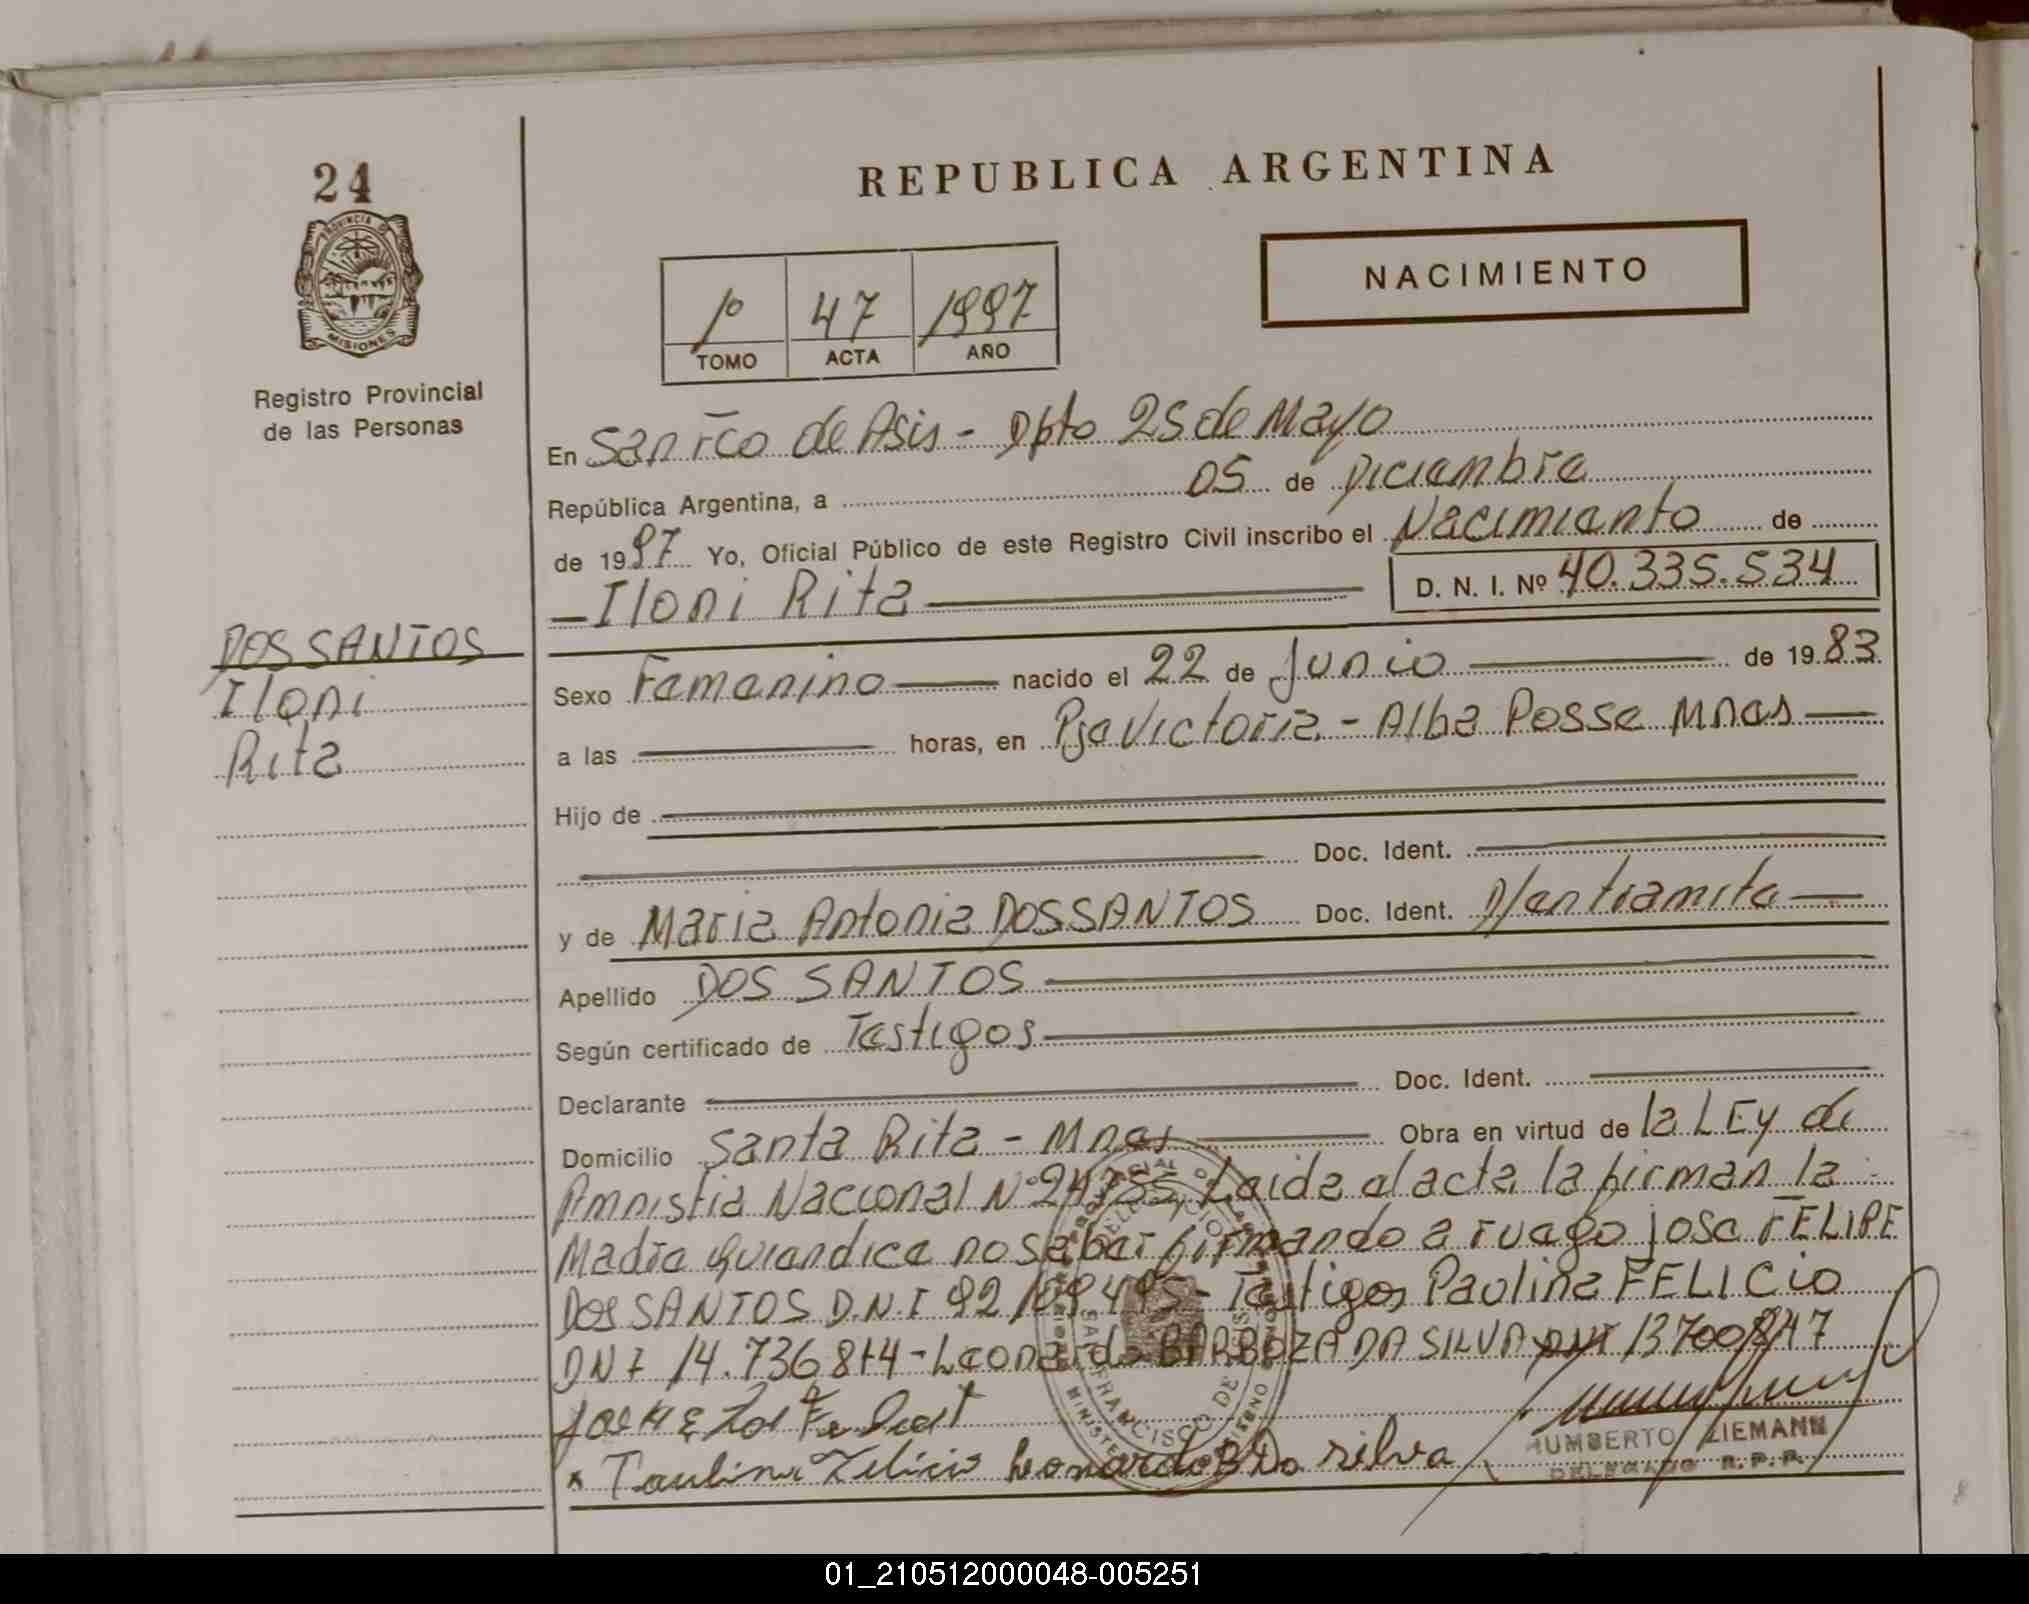 24
PROVINCIA DE
MISIONES
Registro Provincial
de las Personas
DOS SANTOS
Iloni
Rita
REPUBLICA ARGENTINA
NACIMIENTO
1º 47 1997
TOMO ACTA AÑO
En San Fco de Asis - Dpto 25 de Mayo
República Argentina, a 05 de Diciembre
de 1997 Yo, Oficial Público de este Registro Civil inscribo el Nacimiento de
- Iloni Rita D. N. I. Nº 40.335.534
Sexo Femenino nacido el 22 de Junio de 1983
a las horas, en Pje Victoria - Alba Posse Mnes
Hijo de
Doc. Ident.
y de Maria Antonia DOS SANTOS Doc. Ident. D/entramite
Apellido DOS SANTOS
Según certificado de Testigos
Declarante Doc. Ident.
Domicilio Santa Rita - Mnes Obra en virtud de la LEy de
Amnistia Nacional Nº 24755, Leida el acta la firman la
Madre quien dice no saber firmando a ruego jose FELIPE
DOS SANTOS D.N.I 92 109495 - Testigos Paulina FELICIO
DNI 14.736 844 - Leonardo BARBOZA DA SILVA DNI 13700847
Paulina Felicio Leonardo B Da silva
HUMBERTO ZIEMANN
DELEGADO R.P.P.
01_210512000048-005251